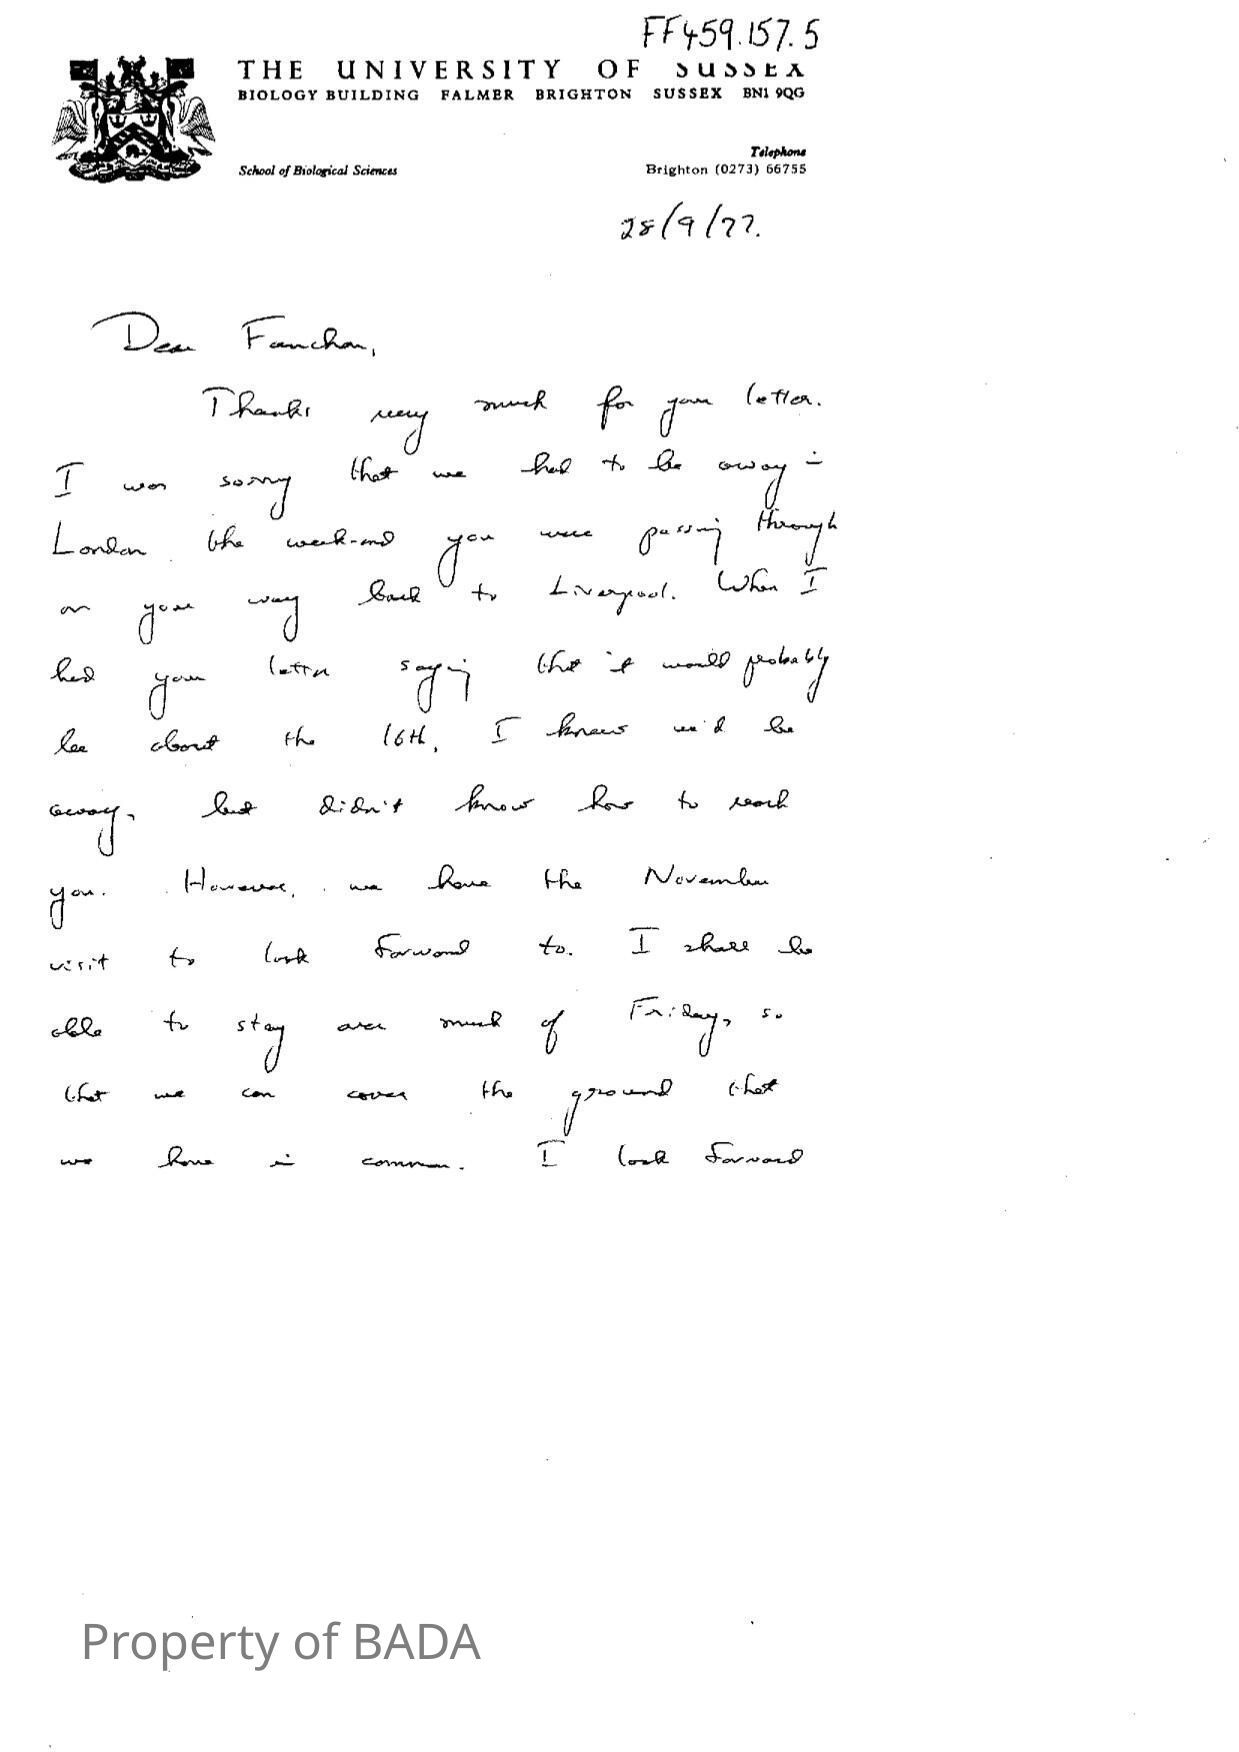 FF459.157.5
THE UNIVERSITY OF SUSSEX
BIOLOGY BUILDING FALMER BRIGHTON SUSSEX BN1 9QG
Telephone
School of Biological Sciences Brighton (0273) 66755
28/9/77.
Dear Fanchon,
Thanks very much for your letter.
I was sorry that we had to be away in
London the week-end you were passing through
on your way back to Liverpool. When I
had your letter saying that it would probably
be about the 16th, I knew we'd be
away, but didn't know how to reach
you. However, we have the November
visit to look forward to. I shall be
able to stay over much of Friday, so
that we can cover the ground that
we have in common. I look forward
Property of BADA